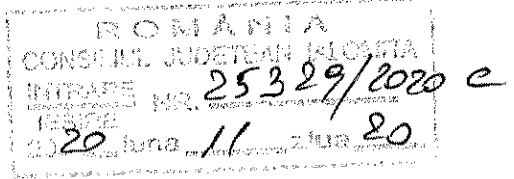 ROMÂNIA
CONSILIUL JUDEȚEAN IALOMIȚA
INTRARE
IEȘIRE NR. 25329/2020 e
2020 luna 11 ziua 20